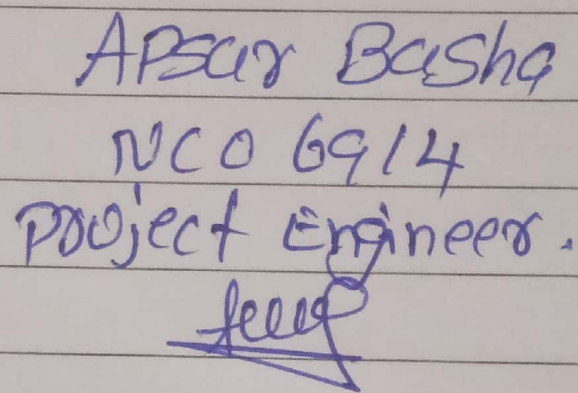 Apsar Basha
NCO 6914
Project Engineer.